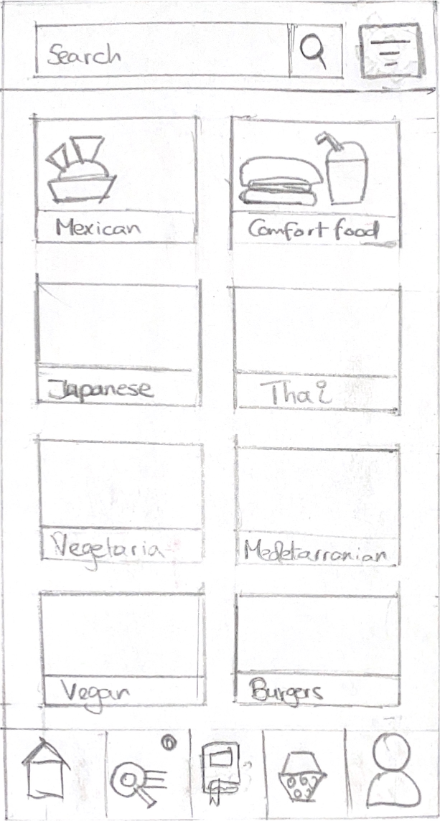 Search
Mexican
Comfort food
Japanese
Thai
Vegetaria
Medetarranian
Vegan
Burgers